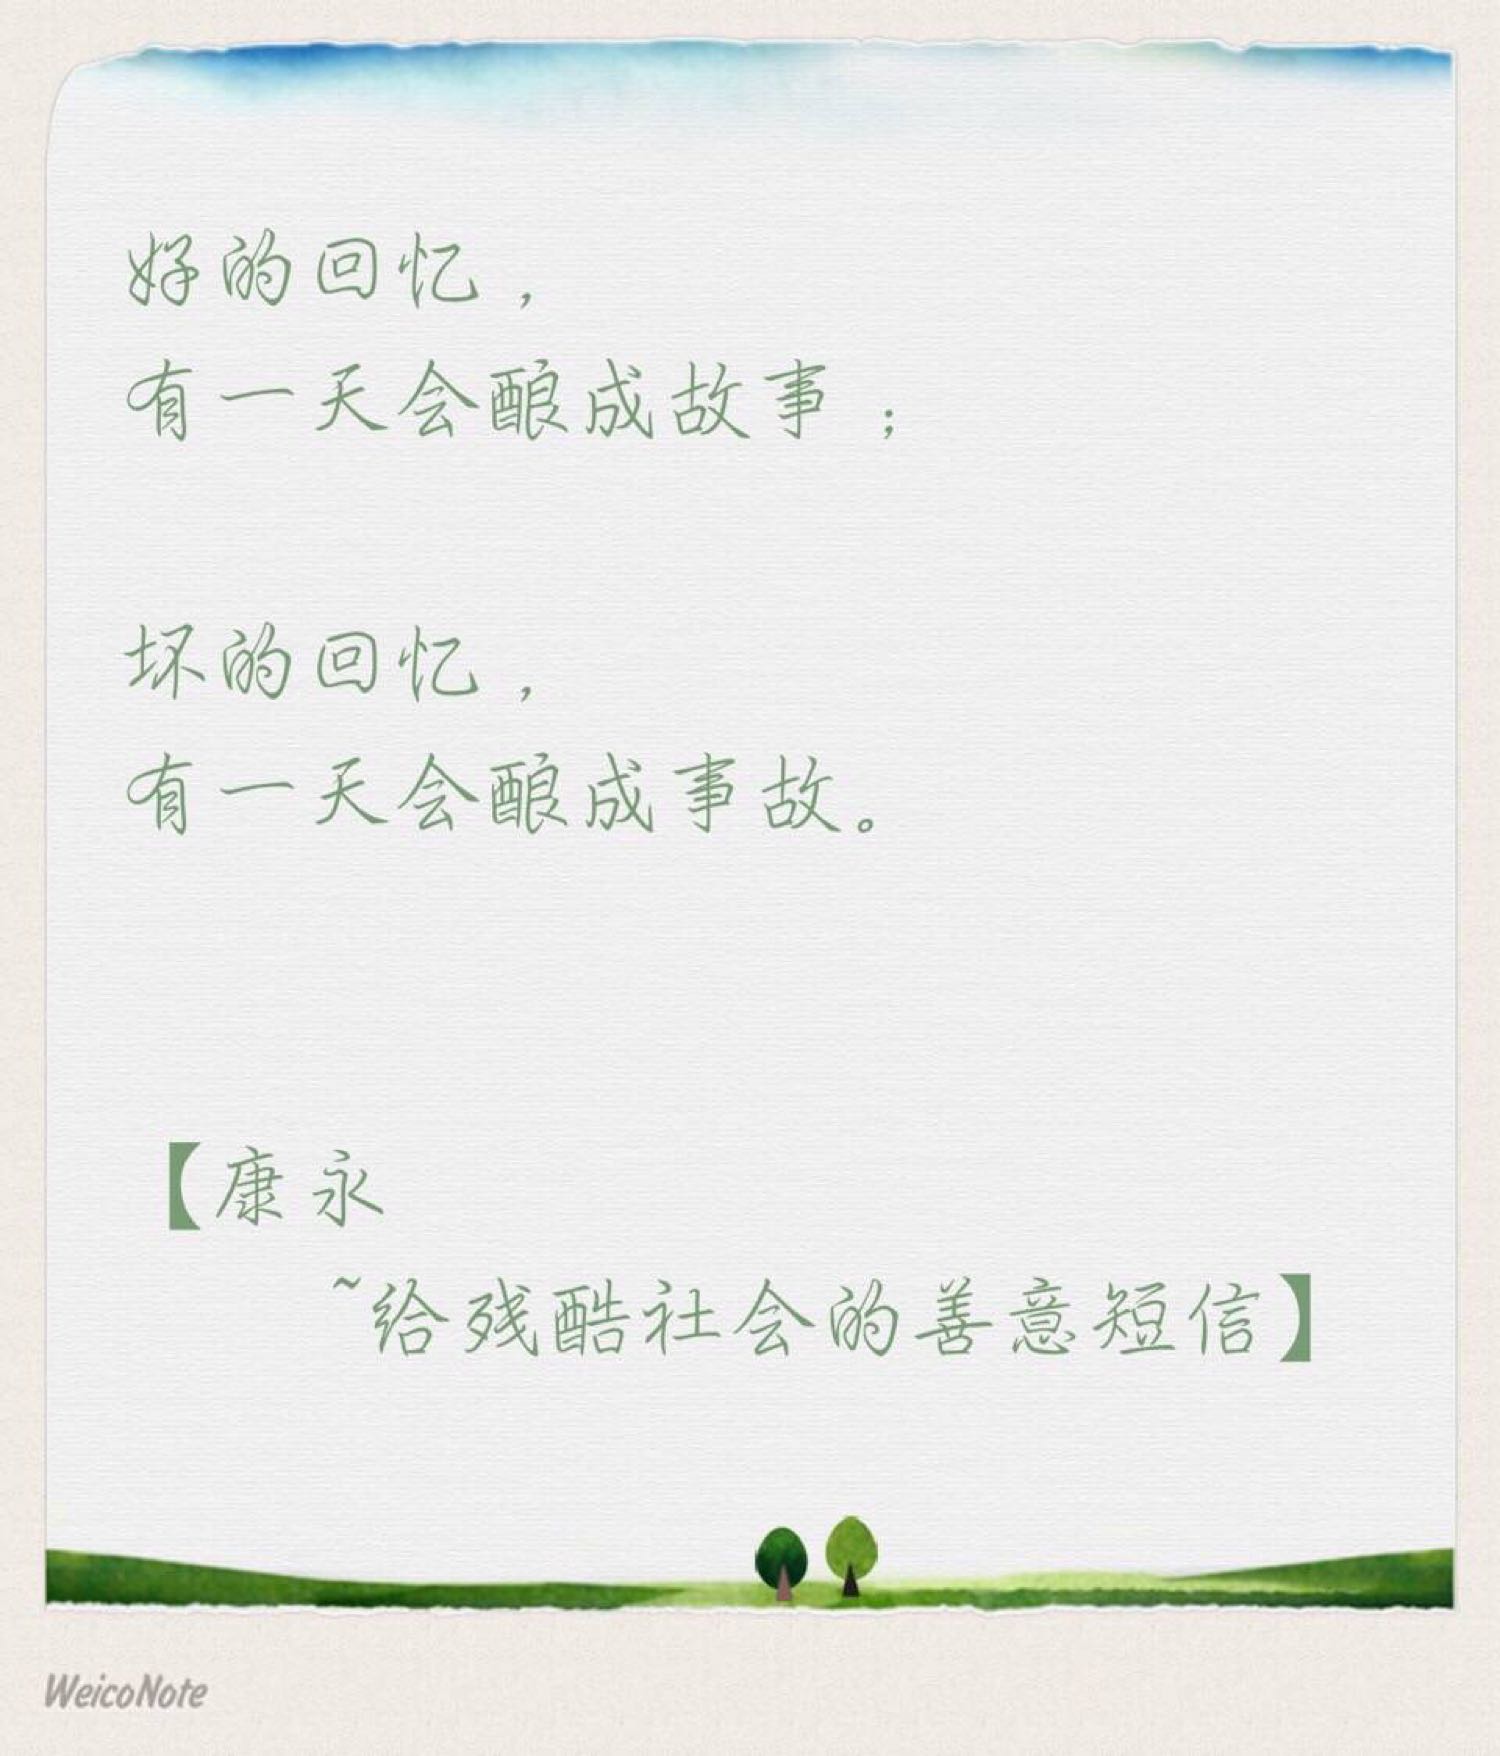 好的回忆，
有一天会酿成故事；
坏的回忆，
有一天会酿成事故。
【康永
~给残酷社会的善意短信】
WeicoNote